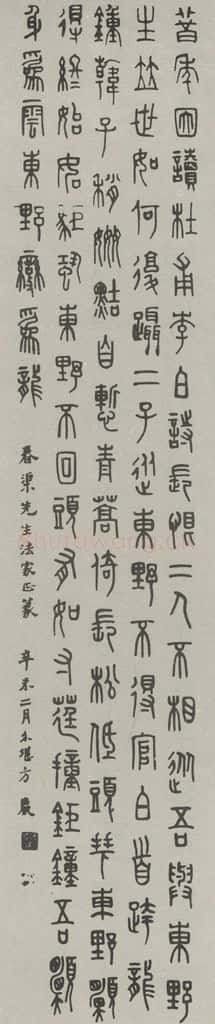 昔年因讀杜甫李白詩長恨二人不相從吾與東野
生並世如何復躡二子從東野不得官白首跨龍
鍾韓子稍姦黠自慙青蒿倚長松低頭拜東野願
得終始如駏蛩東野不回頭有如寸莛撞鉅鐘吾願
身為雲東野變為龍
春渠先生法家正篆 辛未二月小堪方嚴